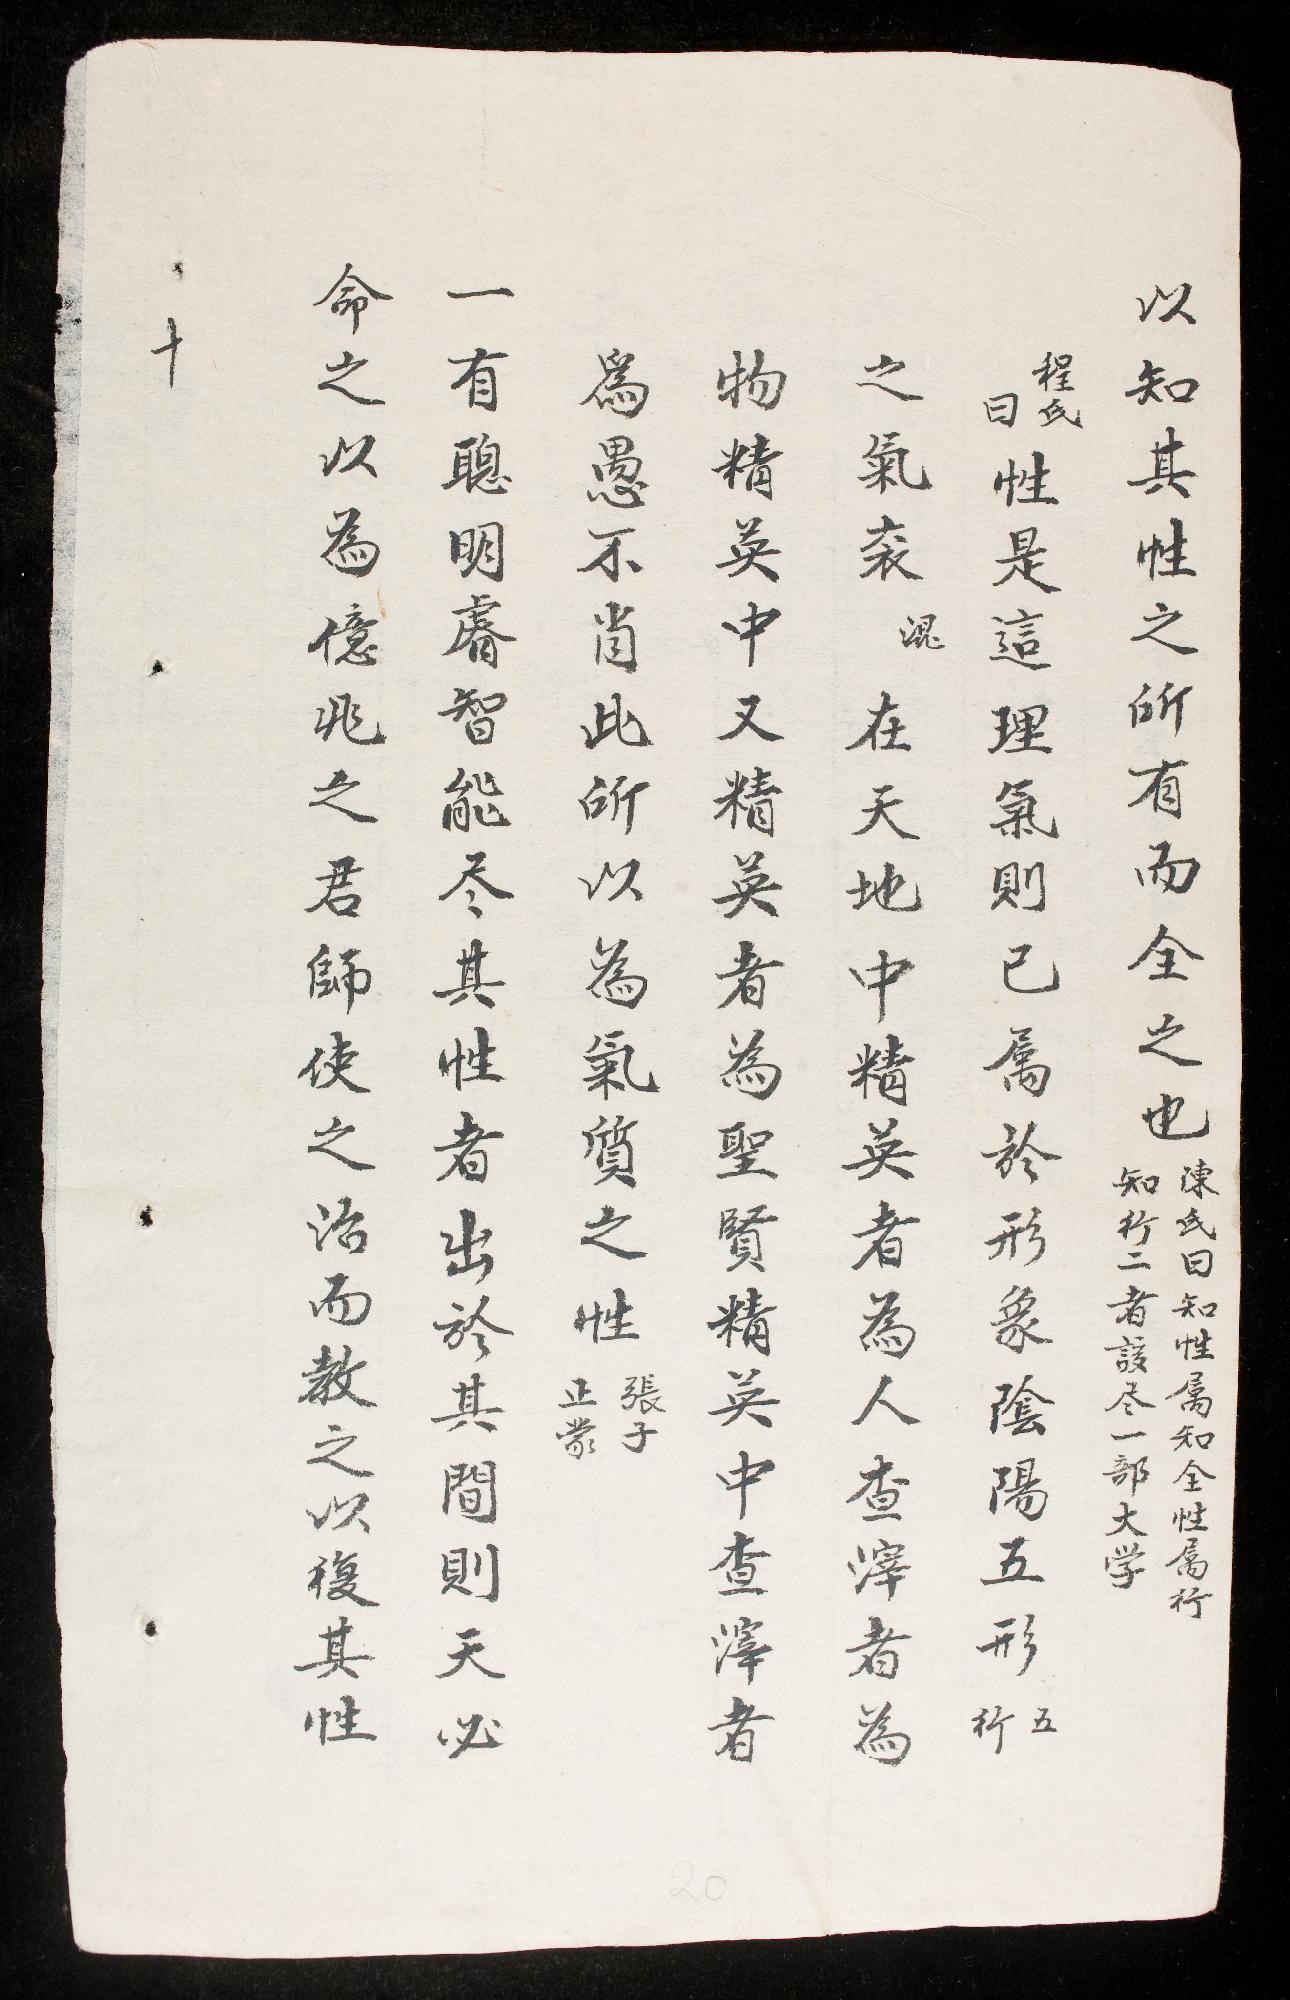 以知其性之所有而全之也陳氏曰知性属知全性属行
知行二者該尽一部大学
程氏曰性是這理氣則已属於形象陰陽五形五行
之氣衮滉在天地中精英者為人查滓者為
物精英中又精英者為聖賢精英中查滓者
爲愚不肖此所以為氣質之性張子正蒙
一有聰明睿智能尽其性者出於其間則天必
命之以為億兆之君師使之治而教之以復其性
十
20